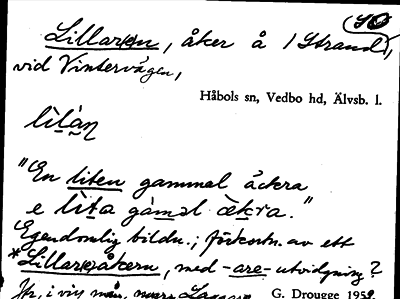 SO
Lillaren, åker å 1 Strand,
vid Vintervägen,
Håbols sn, Vedbo hd, Älvsb. l.
lìlàn
"En liten gammal åckra
e lita gamal ækra."
Egendomlig bildn.; förkortn. av ett
*Lillaråkern, med -are- utvidgning?
Jfr, i viss mån,
G. Drougge 1959.